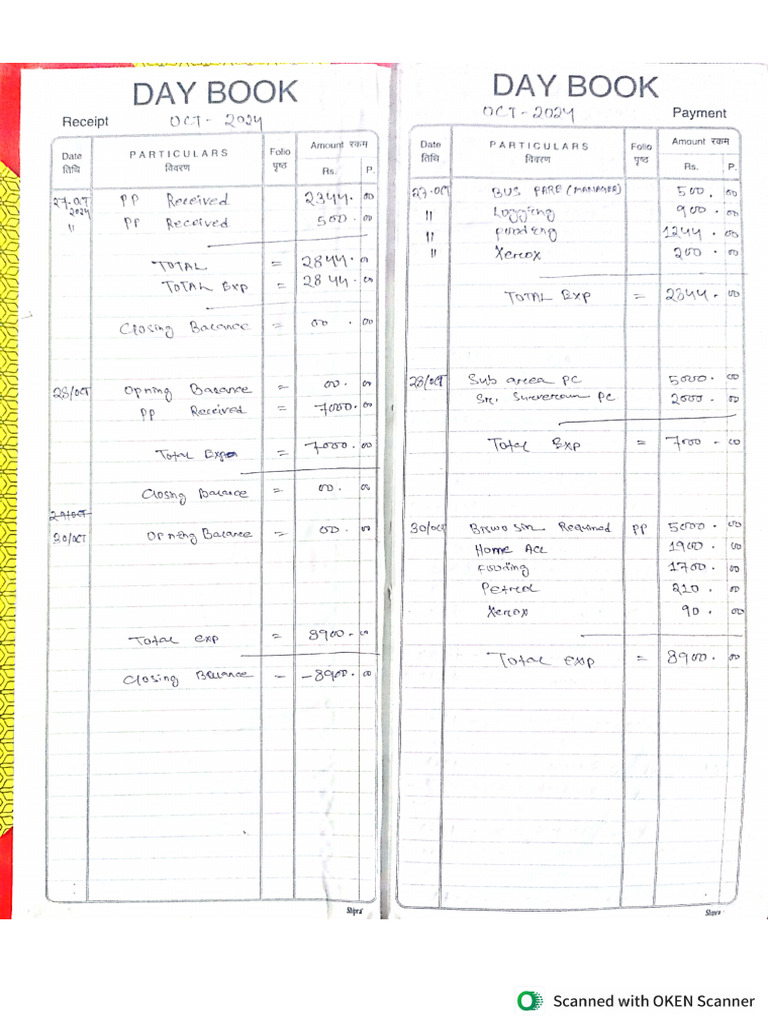 DAY BOOK
Receipt OCT - 2024
Date तिथि PARTICULARS विवरण Folio पृष्ठ Amount रकम Rs. P.
27-OCT 2024 PP Received 2344.00
11 PP Received 500.00
TOTAL = 2844.00
TOTAL Exp = 2844.00
Closing Balance = 00.00
28/OCT Opning Balance = 00.00
PP Received = 7000.00
Total Exp = 7000.00
Closing Balance = 00.00
29/OCT
30/OCT Opning Balance = 00.00
Total exp = 8900.00
Closing Balance = -8900.00
Shipra
DAY BOOK
OCT - 2024 Payment
Date तिथि PARTICULARS विवरण Folio पृष्ठ Amount रकम Rs. P.
27-OCT BUS FARE (MANAGER) 500.00
11 Loggieng 900.00
11 fooding 1244.00
11 Xerox 200.00
TOTAL Exp = 2844.00
28/OCT Sub area PC 5000.00
Sr. PC 2000.00
Total Exp = 7000-00
30/OCT Required PP 5000.00
Home Acc 1900.00
fooding 1700.00
Petrol 210.00
Xerox 90.00
Total exp = 8900.00
Shipra
Scanned with OKEN Scanner